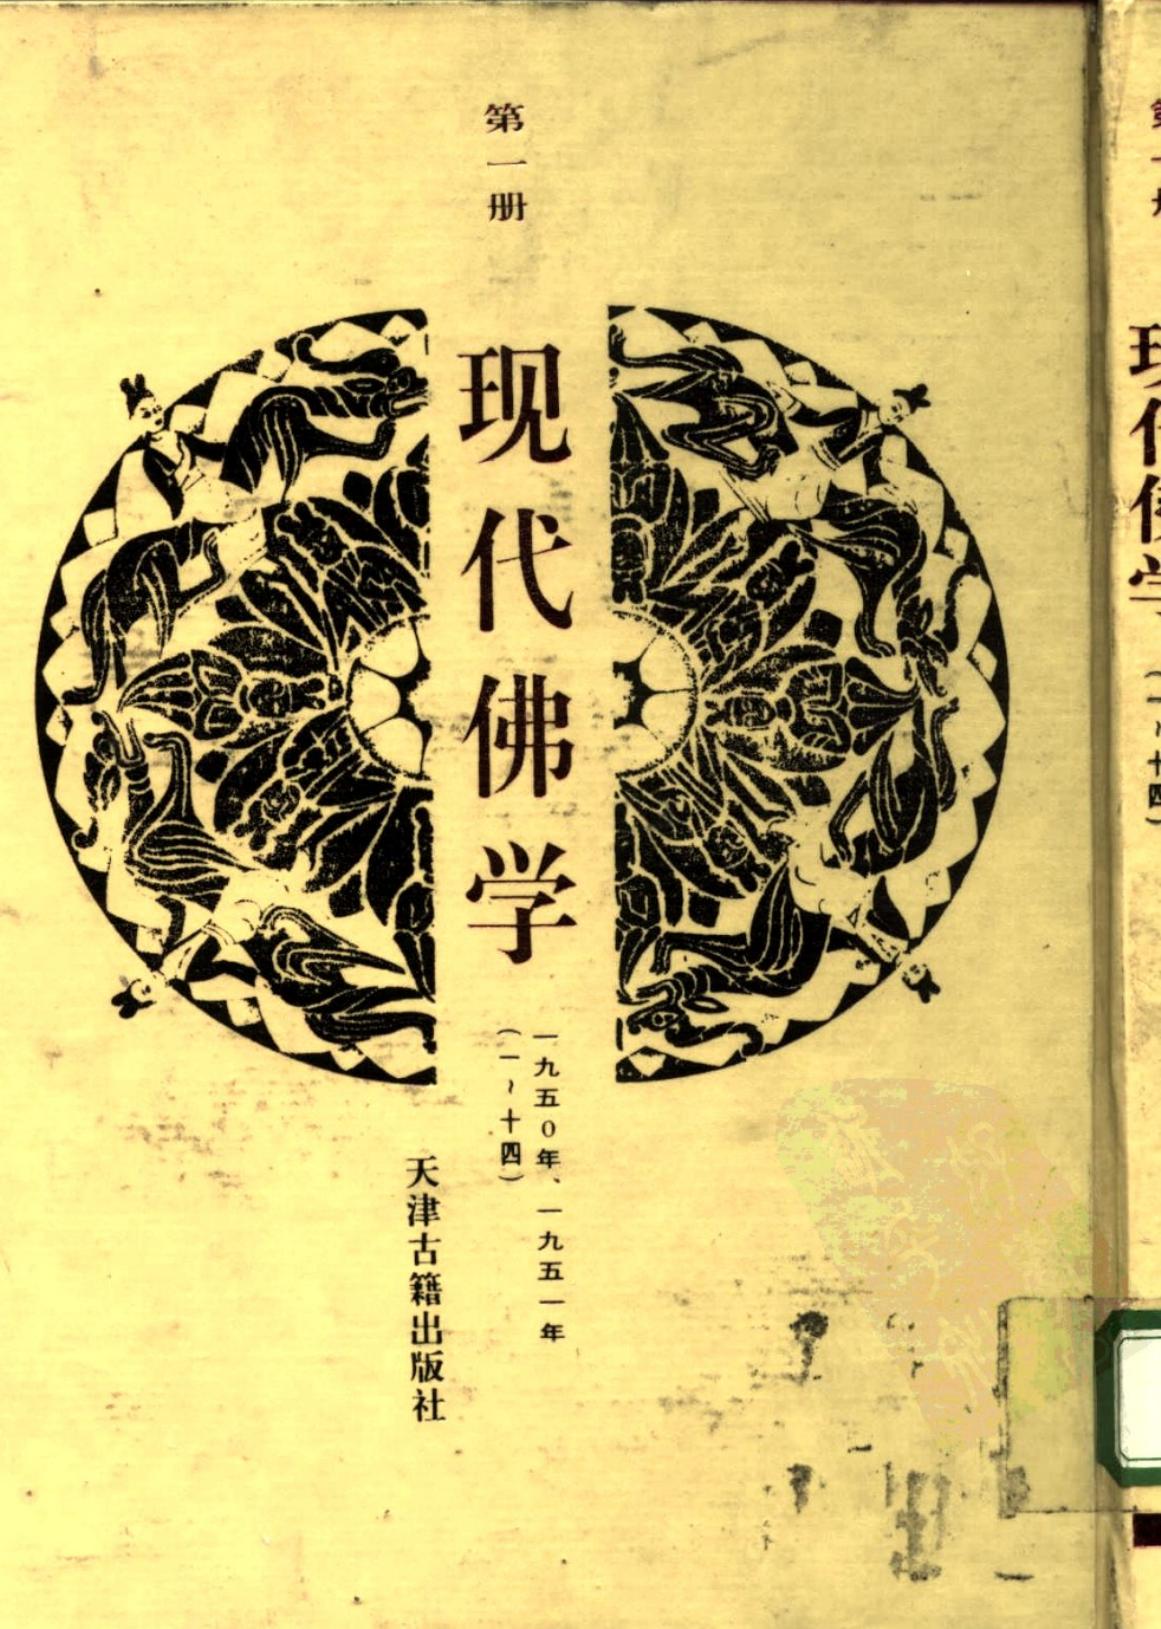 第一册
现代佛学
一九五0年、一九五一年
（一~十四）
天津古籍出版社
现代佛学
（一~十四）